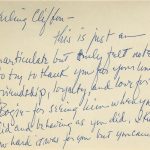 arling Clifton -
This is just an
particular but truly felt note
to try to thank you for your kind
friendship, loyalty and love for
Bogie - for seeing him when you
did and behaving as you did. I know
how hard it was for you but you can